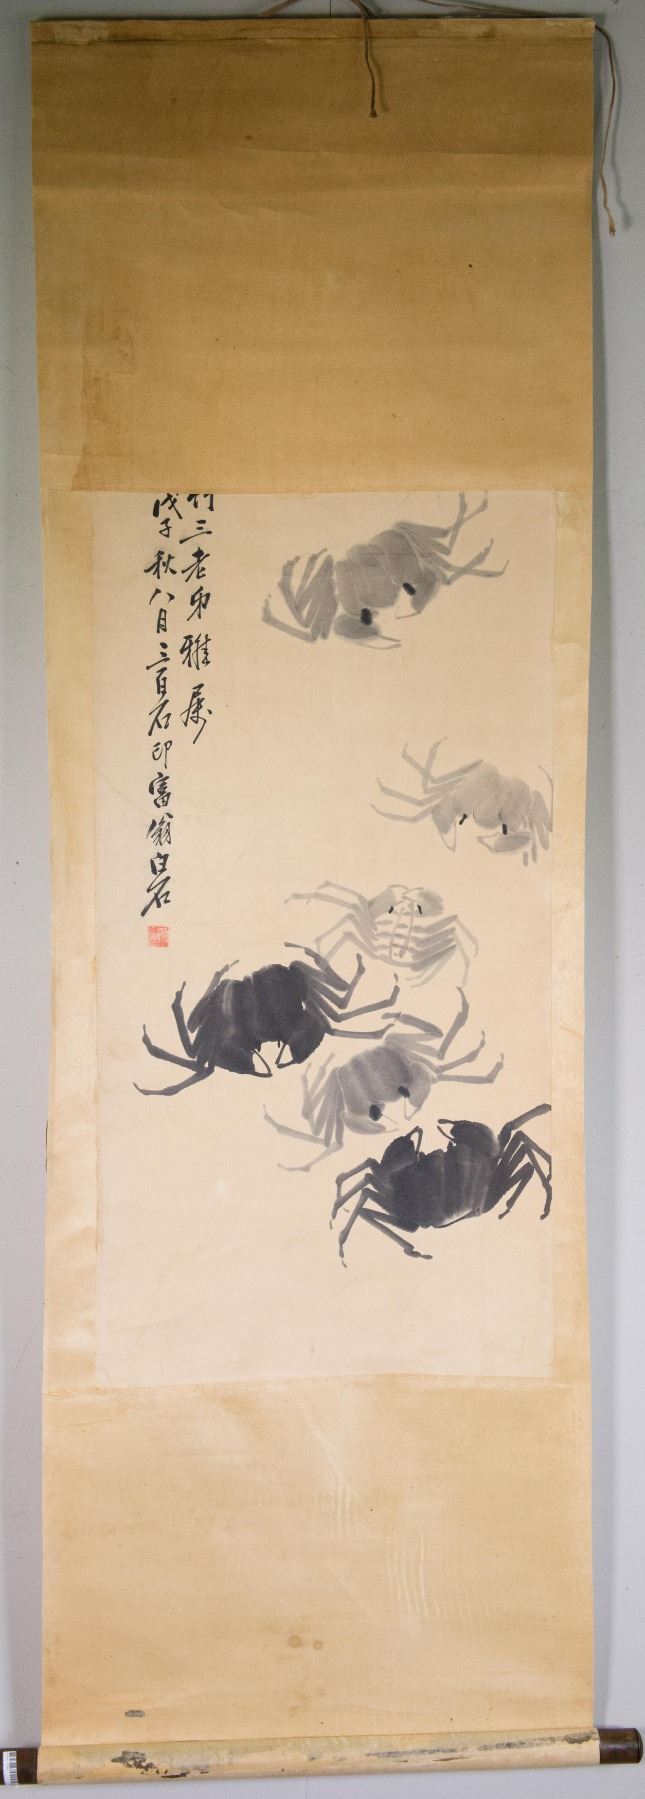 竹三老弟雅属
戊子秋八月三百石印富翁白石